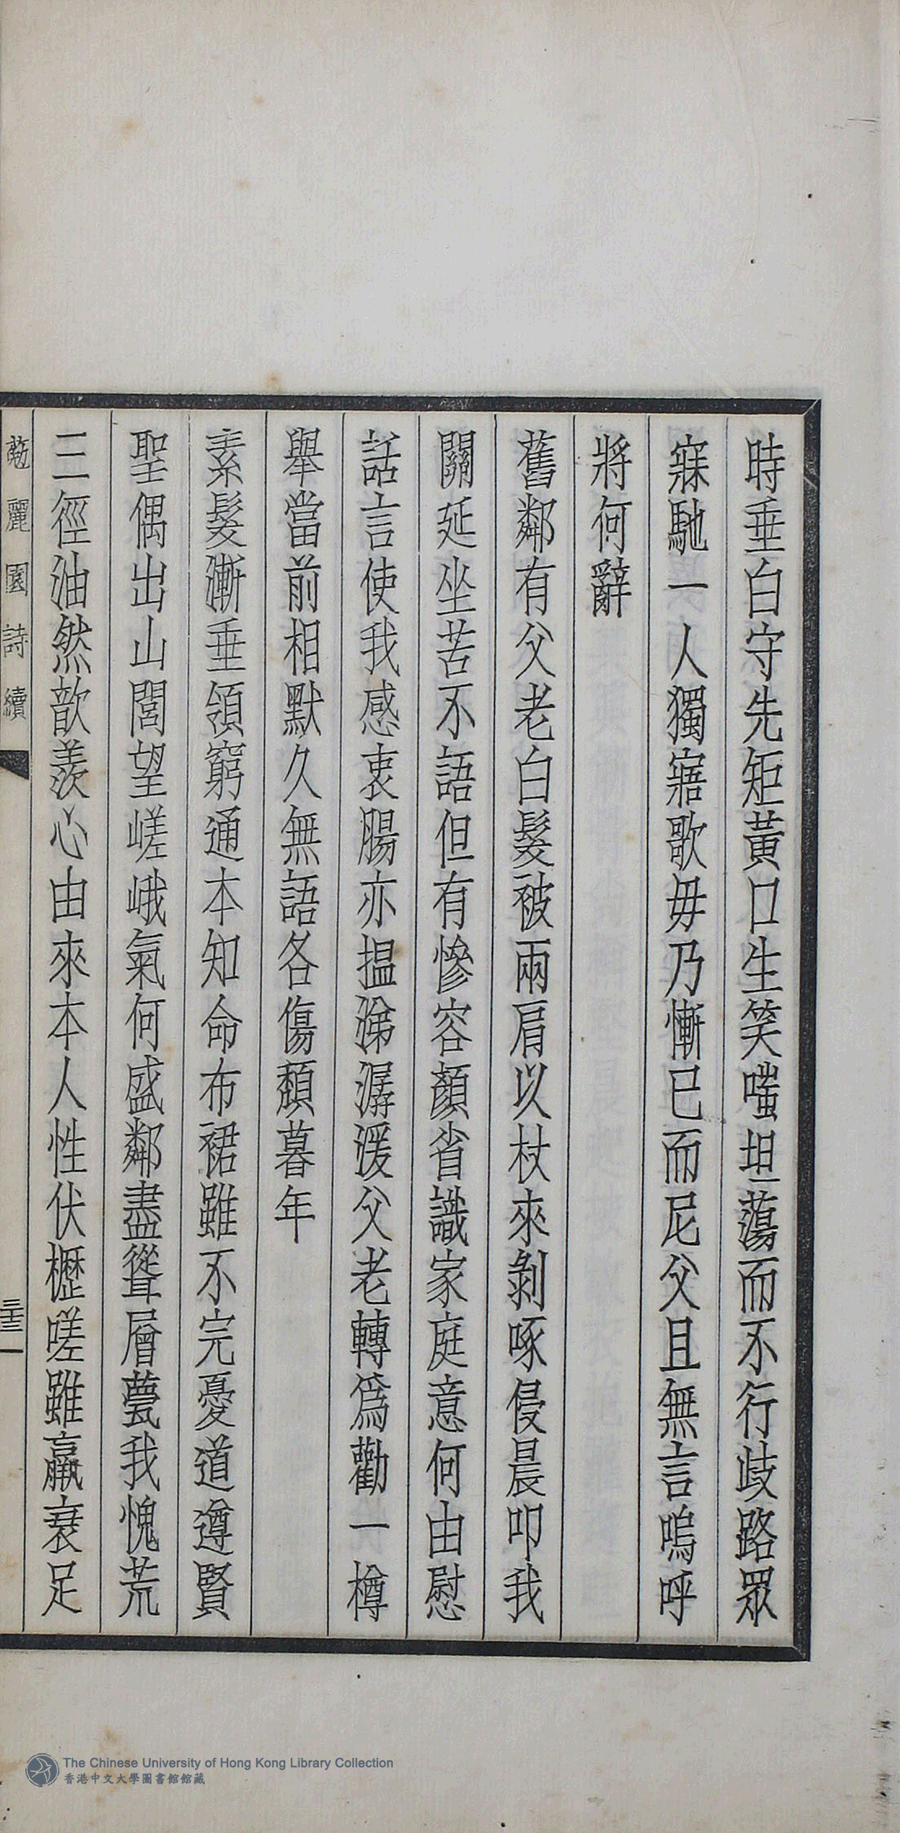 時垂白守先矩黃口生笑嗤坦蕩而不行歧路眾
寐馳一人獨寤歌毋乃慚已而尼父且無言嗚呼
將何辭
舊鄰有父老白髮被兩肩以杖來剝啄侵晨叩我
關延坐苦不語但有慘容顏省識家庭意何由慰
話言使我感衷腸亦揾涕潺湲父老轉爲勸一樽
舉當前相默久無語各傷頹暮年
素髮漸垂領窮通本知命布裙雖不完憂道遵賢
聖偶出山閭望嵯峨氣何盛鄰盡聳層甍我愧荒
三徑油然歆羨心由來本人性伏櫪嗟雖羸衰足
麗園詩續
三十三
The Chinese University of Hong Kong Library Collection
香港中文大學圖書館館藏